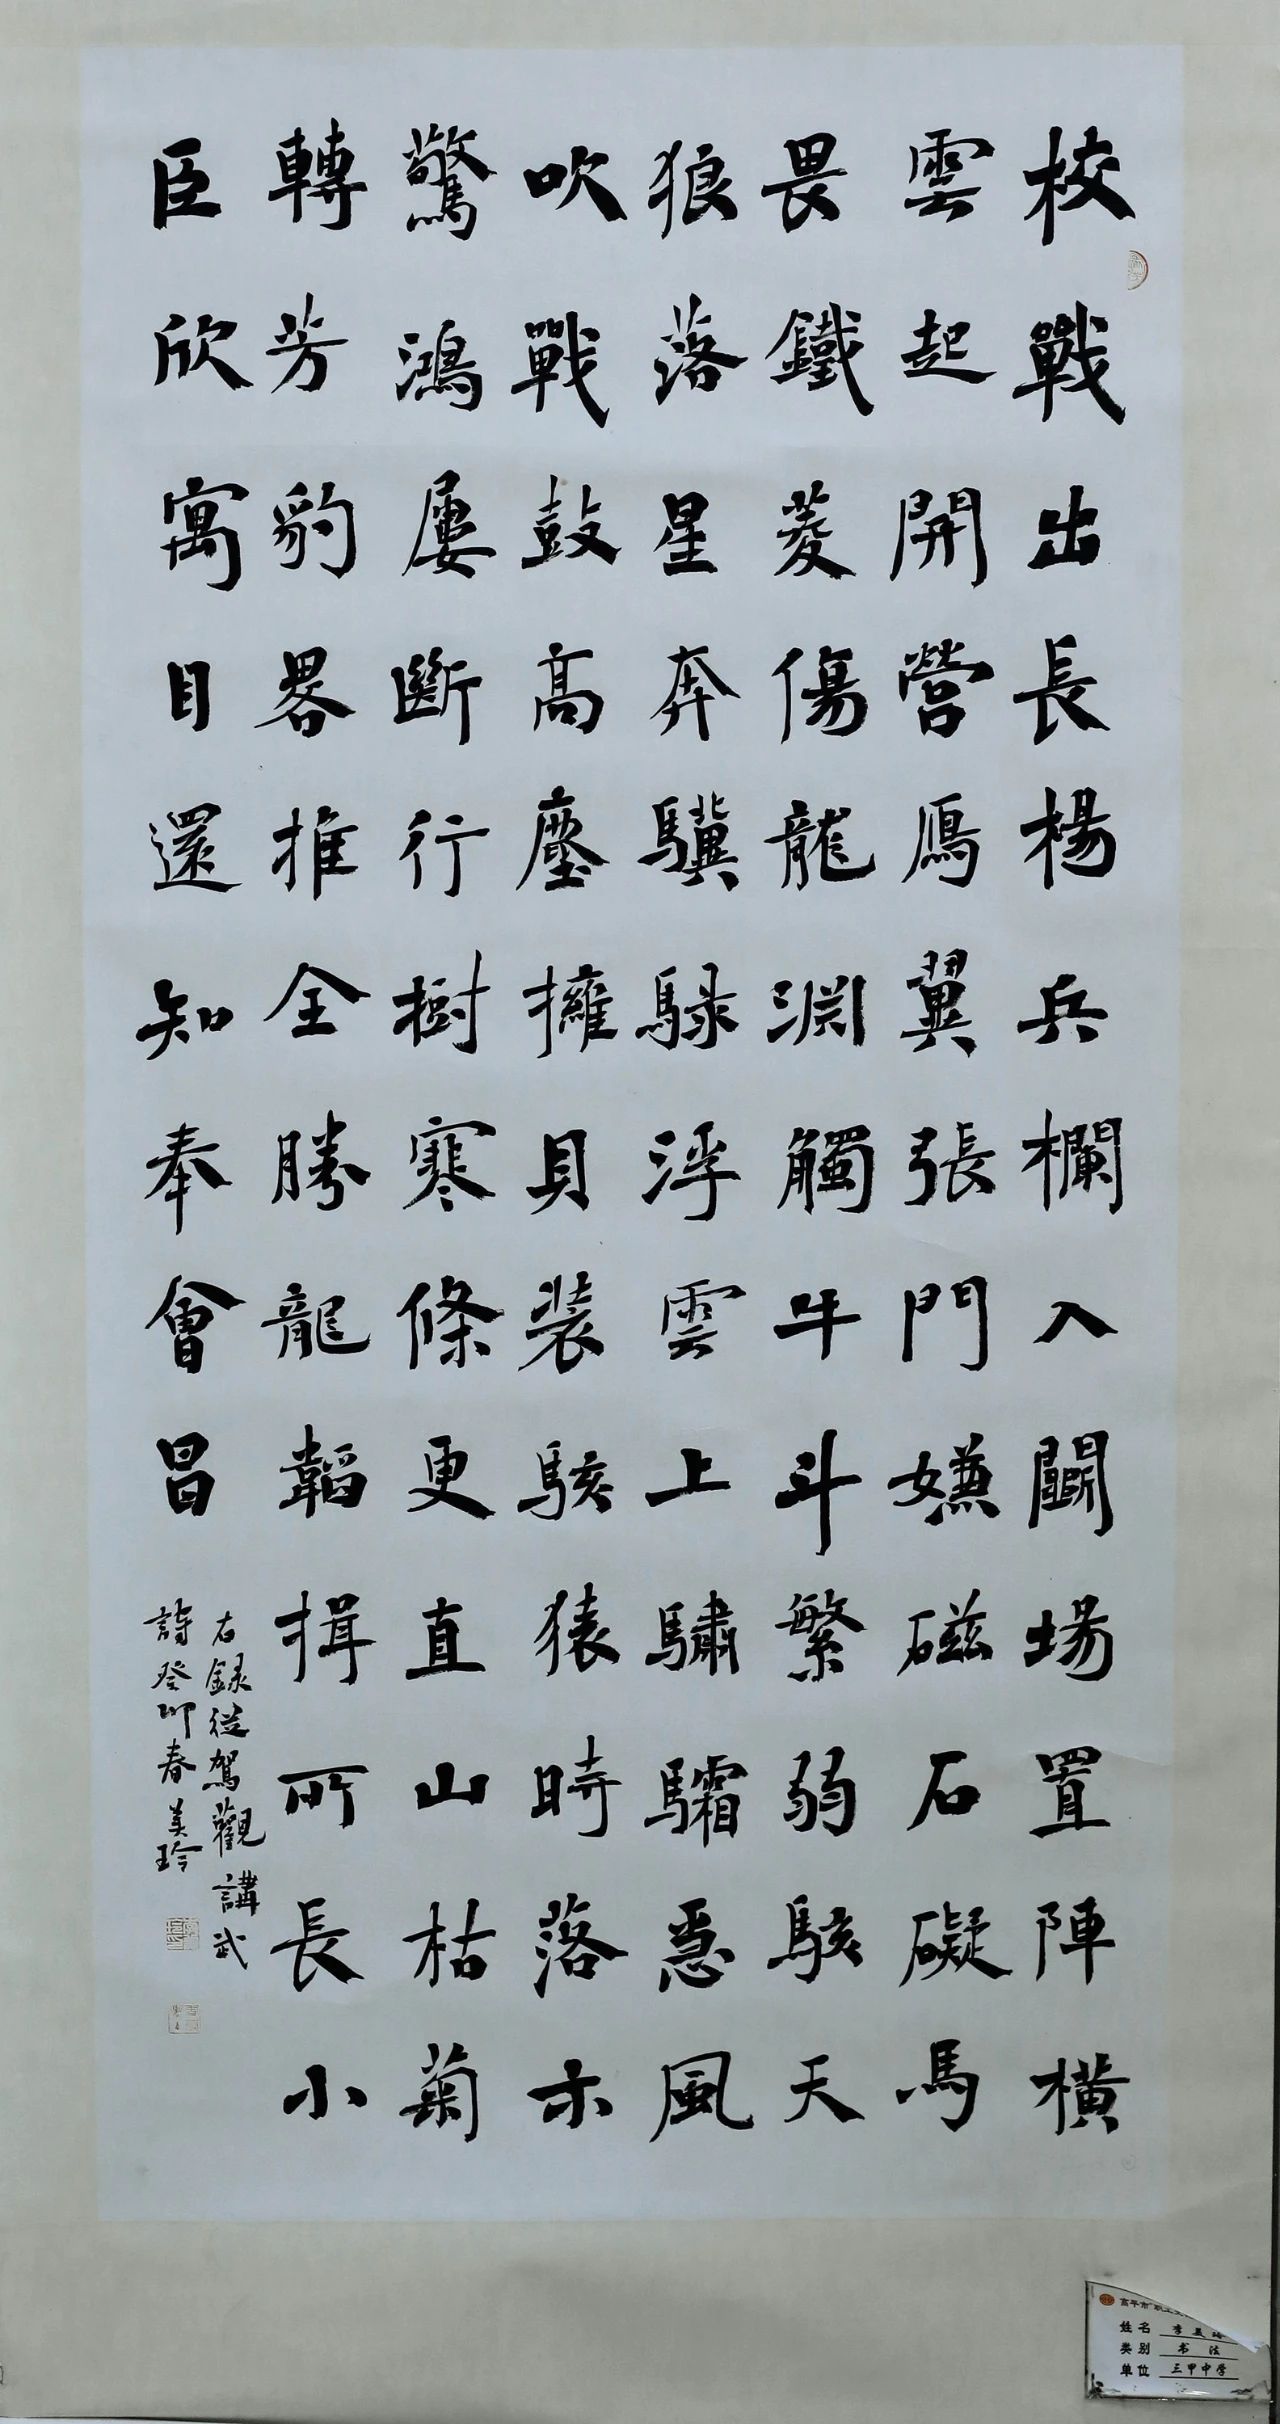 校戰出長楊兵欄入鬭場置陣橫
雲起開營鴈翼張門嫌磁石礙馬
畏鐵菱傷龍淵觸牛斗繁弱駭天
狼落星奔驥騄浮雲上驌驦急風
吹戰鼓高塵擁貝装駭猿時落木
驚鴻屢斷行樹寒條更直山枯菊
轉芳豹畧推全勝龍韜揖所長小
臣欣寓目還知奉會昌
右録從駕觀講武
詩癸卯春美玲
高平市"职工文
姓名 李美
类别 书法
单位 三甲中学